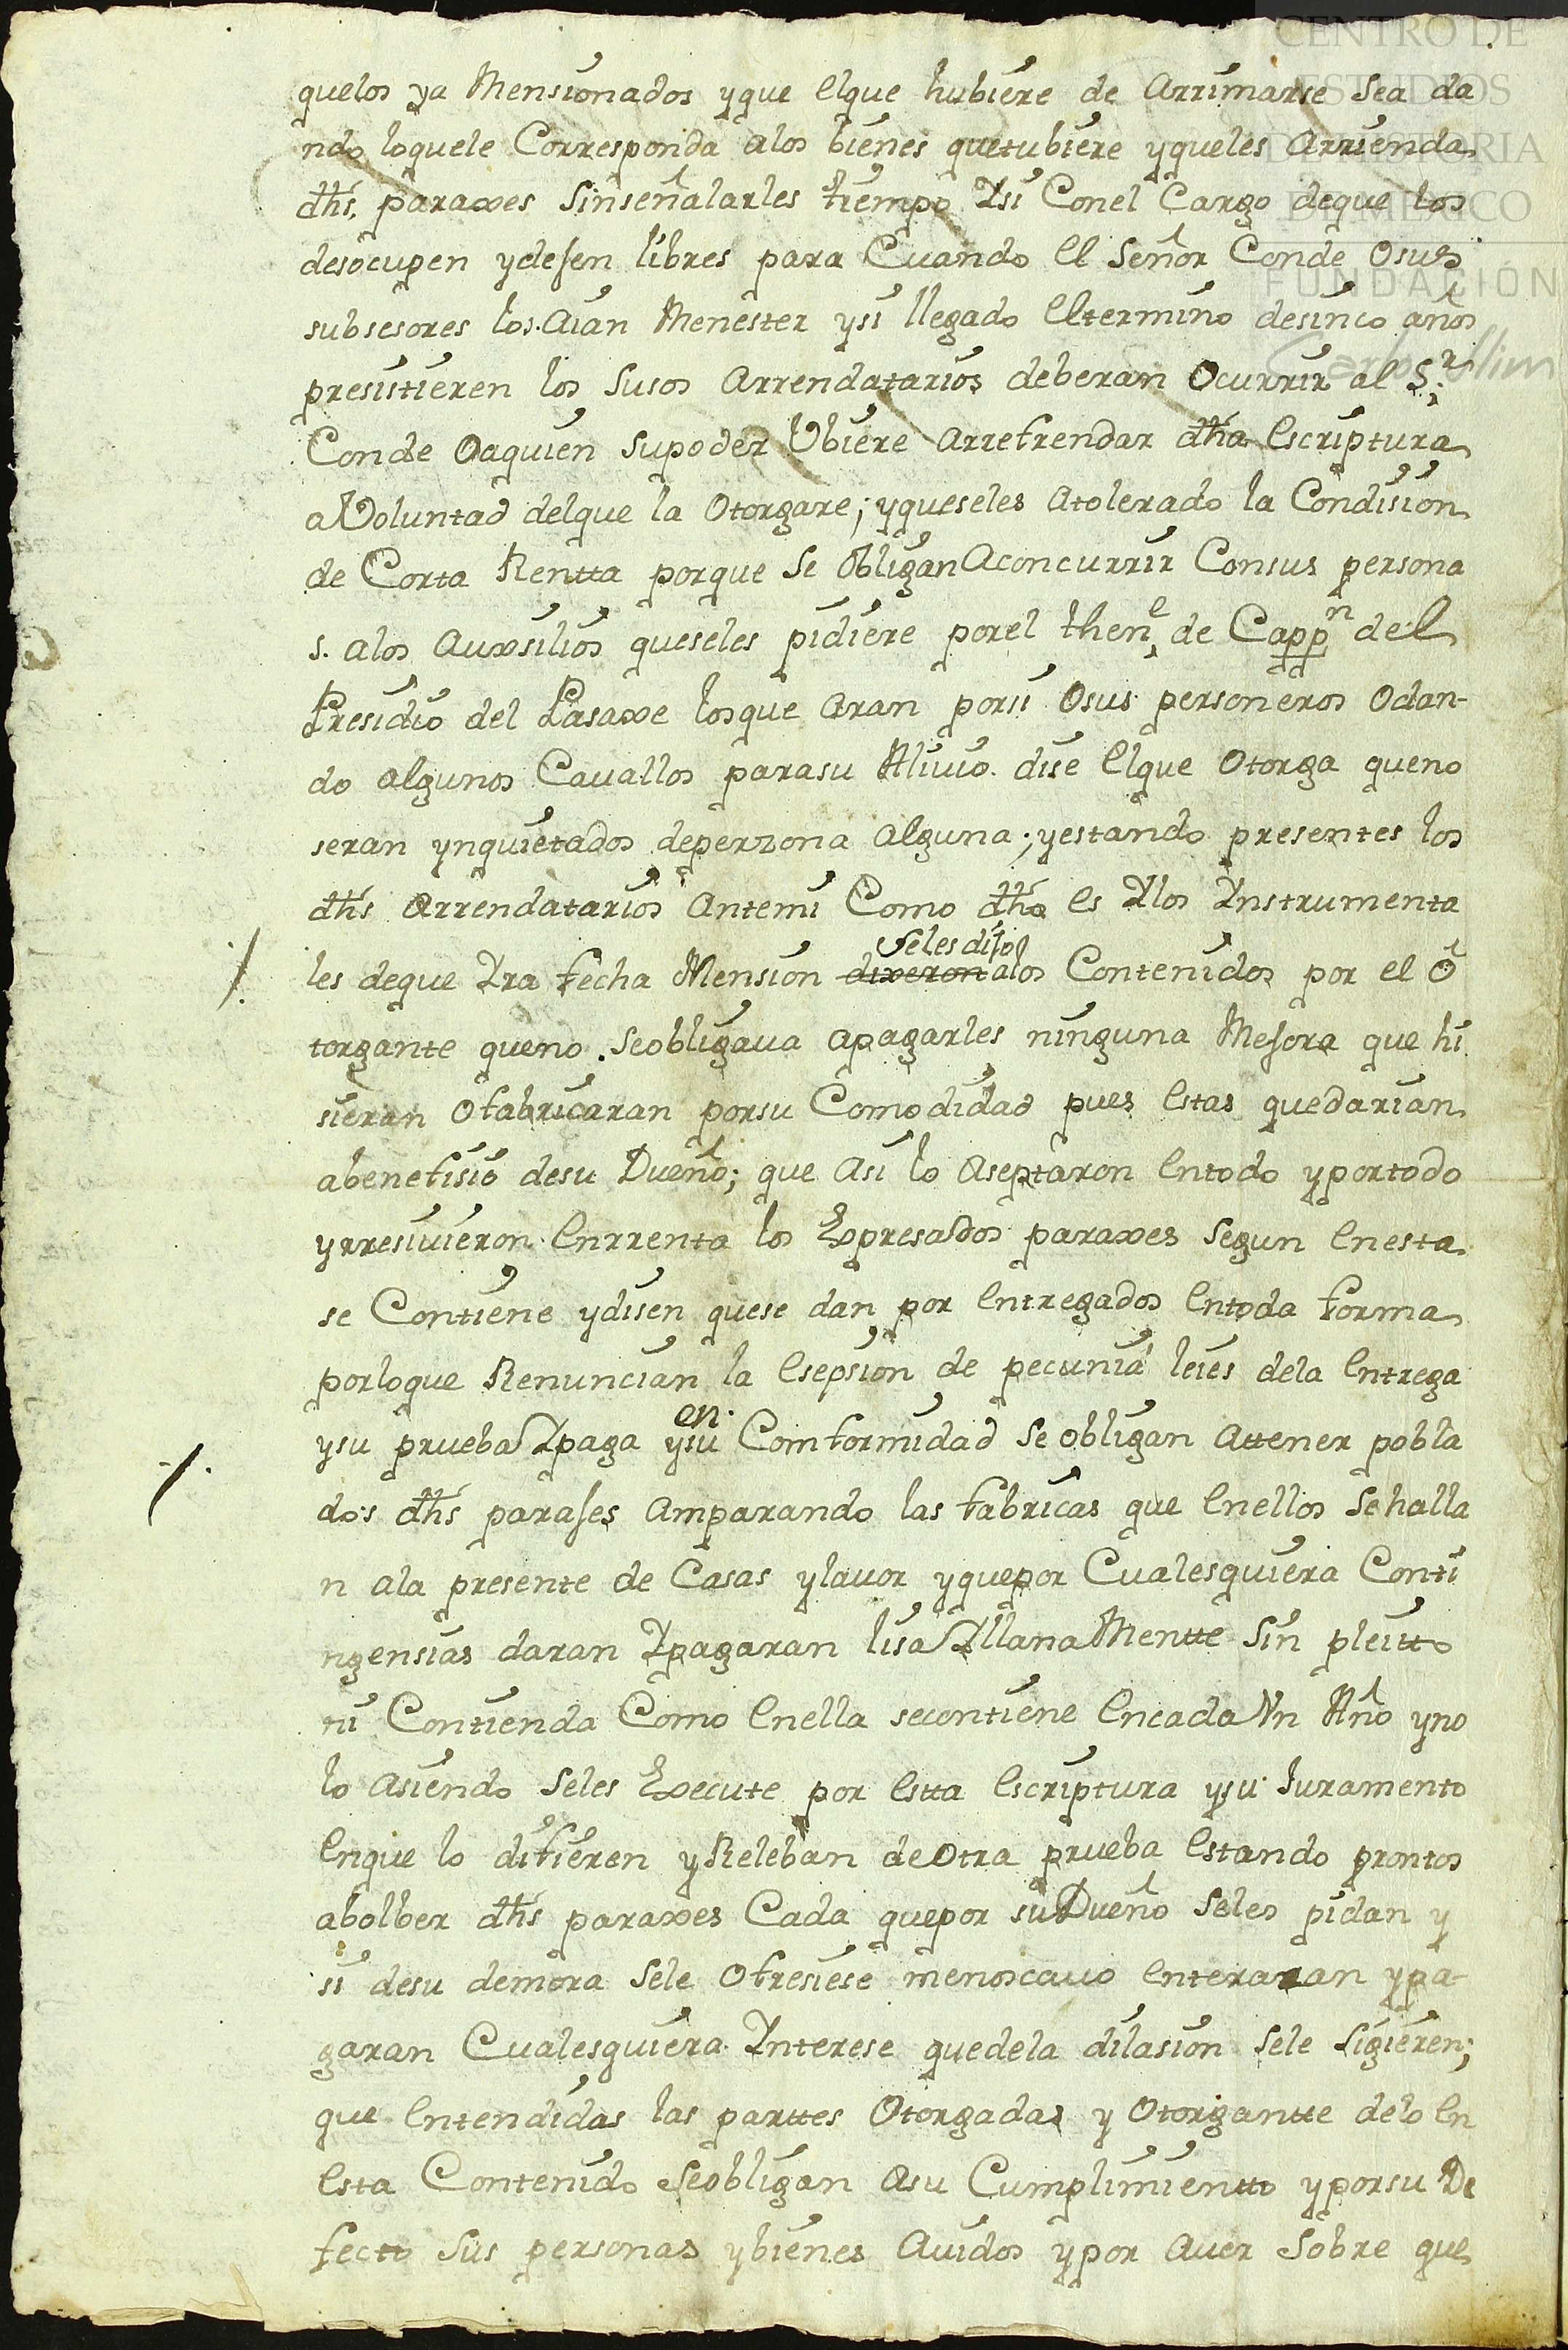 CENTRO DE
ESTUDIOS
DE HISTORIA
DE MÉXICO
FUNDACIÓN
Carlos Slim
quelos ya Mensionados yque elque hubiere de Arrimarse sea da
ndo loquele Corresponda alos bienes quetubiere yqueles Arrienda
dhs. paraxes sinseñalarles tiempo Ysi Conel Cargo deque los
desocupen ydejen libres para Cuando el Señor Conde Osus
subsesores los Aian Menester ysi llegado eltermino desinco años
presistieren los susos Arrendatarios deberan Ocurrir al Sr.
Conde Oaquien supoder Ubiere Arrefrendar dha escriptura
aVoluntad delque la Otorgare; yqueseles atolerado la Condision
de Corta Rentta porque se ObliganAconcurrir Consus persona
s. alos Auxsilios queseles pidiere porel thene. de Cappn del
Presidio del Pasaxe losque Aran porsi Osus personeros Odan-
do algunos Cavallos parasu Alivio. dise elque Otorga queno
seran ynquietados deperzona alguna; yestando presentes los
dhs Arrendatarios Antemi Como dho es Ylos Ynstrumenta
seles dijo
/. les deque Yra fecha Mension dixeron alos Contenidos por el O
torgante queno seobligava apagarles ninguna Mejora que hi
sieran Ofabricaran porsu Comodidad pues estas quedarian
abenefisio desu Dueño; que Asi lo Aseptaron entodo yportodo
yrresivieron enrrenta los Expresados paraxes segun enesta
se Contiene ydisen quese dan por entregados entoda forma
porloque Renuncian la esepsion de pecunia leies dela entrega
en.
/. ysu prueba Ypaga ysu Comformidad se obligan attener pobla
dos dhs parajes amparando las fabricas que enellos sehalla
n ala presente de Casas ylavor yquepor Cualesquiera Conti
ngensias daran Ypagaran lisa YllanaMentte sin pleitto
ni Contienda Como enella secontiene encada Vn Año yno
lo Asiendo seles Execute por estta escriptura ysu Juramento
enque lo difieren yReleban deOtra prueba estando prontos
abolber dhs paraxes Cada quepor suDueño seles pidan y
si desu demora sele Ofresiese menoscavo enteraran ypa-
garan Cualesquiera Ynterese quedela dilasion sele sigieren;
que entendidas las parttes Otorgadas y Otorgantte delo en
esta Contenido seobligan Asu Cumplimientto yporsu De
fectto sus personas ybienes Avidos ypor Aver sobre que